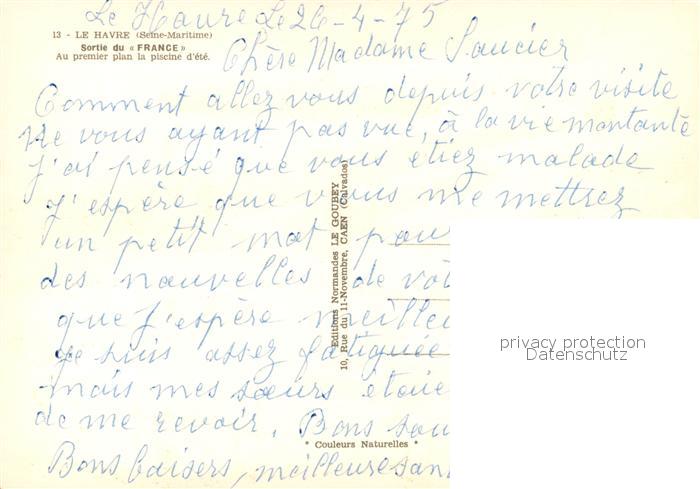 Le Havre Le 26-4-75
13 - LE HAVRE (Seine-Maritime)
Sortie du « FRANCE »
Au premier plan la piscine d'été.
Chère Madame Saucier
Comment allez vous depuis votre visite
Ne vous ayant pas vue, à la vie montante
J'ai pensé que vous étiez malade
J'espère que vous me mettrez
un petit mot pour
des nouvelles de vot
que j'espère meilleu
Je suis assez fatiguée
mais mes sœurs étaie
de me revoir. Bons sou
Bons baisers, meilleure san
Editions Normandes LE GOUBEY
10, Rue du 11-Novembre, CAEN (Calvados)
* Couleurs Naturelles *
privacy protection
Datenschutz